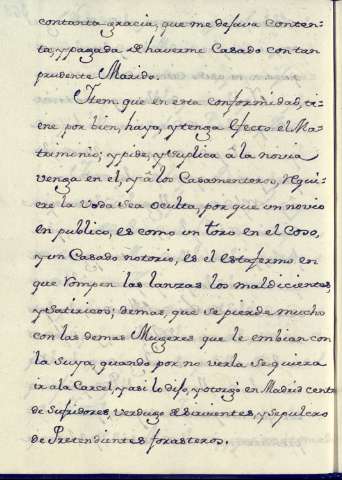 contanta gracia, que me dejava conten-
ta, y pagada de haverme Casado con tan
prudente Marido.
Item que en esta conformidad, ti-
ene por bien, haya, y tenga efecto el Ma-
trimonio; y pide, y suplica à la novia
venga en el, y à los Casamenteros, qe qui-
ere la voda sea oculta, por que un novio
en publico, es como un toro en el Coso,
y un Casado notorio, es el estafermo en
que rompen las lanzas los maldicientes,
y satiricos; demas, que se pierde mucho
con las demas Mugeres que le embian con
la suya, quando por no verla se quiera
ir a la Carcel, y asi lo dijo, y otorgó en Madrid centro
de sufridores, verdugo de sirvientes, y sepulcro
de Pretendientes forasteros.